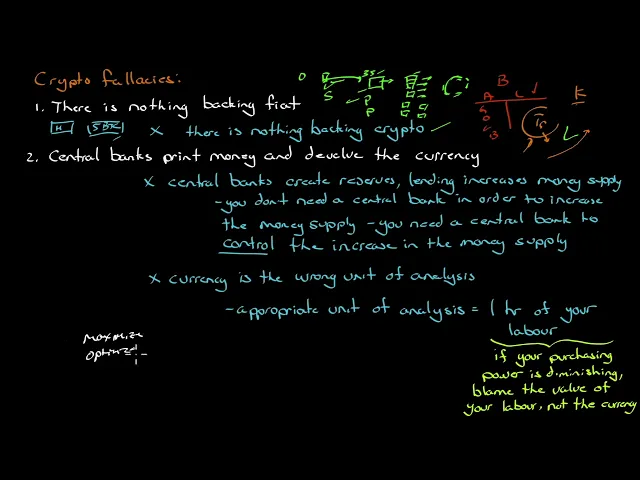 Crypto fallacies:
1. There is nothing backing fiat
H 5 BTC
x there is nothing backing crypto
2. Central banks print money and devalue the currency
x central banks create reserves, lending increases money supply
- you don't need a central bank in order to increase
the money supply - you need a central bank to
control the increase in the money supply
x currency is the wrong unit of analysis
- appropriate unit of analysis = 1 hr of your
labour
if your purchasing
power is diminishing,
blame the value of
your labour, not the currency
maximize
B
A L
K
L
S P
P